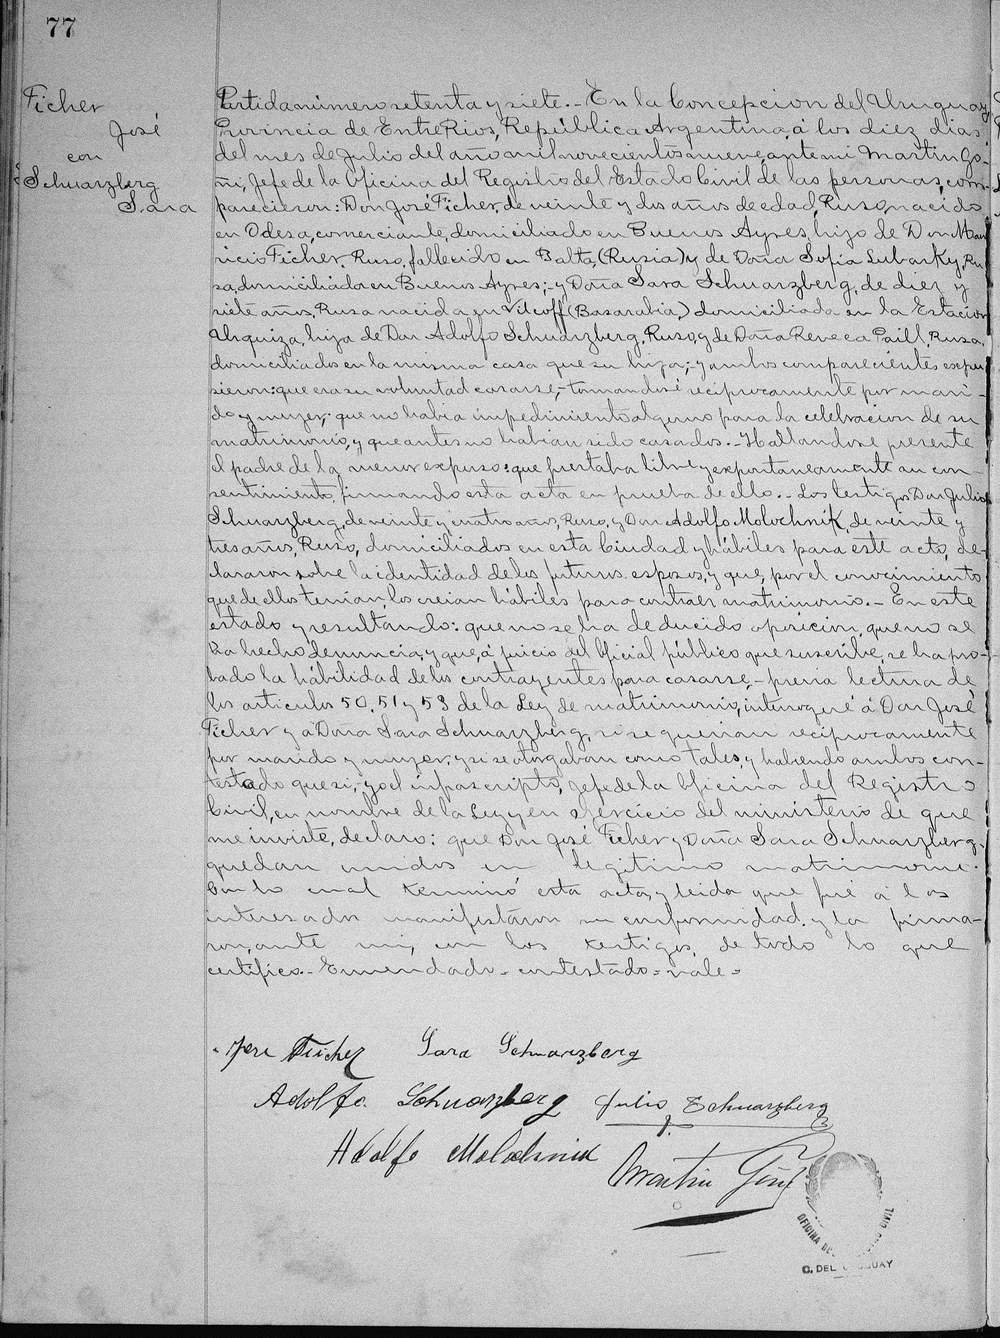 77
Ficher
José
con
Schwarzberg
Sara
Partida número setenta y siete.- En la Concepcion del Uruguay,
Provincia de Entre Rios, República Argentina, á los diez dias
del mes de Julio del año mil novecientos nueve, ante mi Martin Go-
ñi, Jefe de la Oficina del Registro del Estado Civil de las personas, com-
parecieron: Don José Ficher, de veinte y dos años de edad, Ruso, nacido
en Odesa, comerciante, domiciliado en Buenos Ayres, hijo de Don Mau
ricio Ficher, Ruso, fallecido en Balta, (Rusia) y de Doña Sofia Lubarky, Ru
sa, domiciliada en Buenos Ayres;- y Doña Sara Schwarzberg, de diez y
siete años, Rusa nacida en Vilcoff (Basarabia) domiciliada en la Estacion
Urquiza, hija de Don Adolfo Schwarzberg, Ruso, y de Doña Reveca Paill, Rusa,
domiciliados en la misma casa que su hija;- y ambos comparecientes expu
sieron: que era su voluntad casarse,- tomandose reciprocamente por mari-
do y mujer; que no habia impedimiento alguno para la celebracion de su
matrimonio, y que antes no habian sido casados.- Hallandose presente
el padre de la menor expuso: que prestaba libre y espontaneamente su con-
sentimiento, firmando esta acta en prueba de ello.- Los testigos Don Julio
Schwarzberg, de veinte y cuatro años, Ruso, y Don Adolfo Molochnik, de veinte y
tres años, Ruso, domiciliados en esta Ciudad y hábiles para este acto, de-
clararon sobre la identidad de los futuros esposos, y que, por el conocimiento
que de ellos tenian, los creian hábiles para contraer matrimonio.- En este
estado y resultando: que no se ha deducido oposicion, que no se
ha hecho denuncia, y que, á juicio del Oficial público que suscribe, se ha pro-
bado la habilidad de los contrayentes para casarse,- previa lectura de
los articulos 50, 51 y 53 de la Ley de matrimonio, interrogué á Don José
Ficher y a Doña Sara Schwarzberg, si se querian reciprocamente
por marido y mujer, y si se otorgaban como tales, y habiendo ambos con-
testado que si, yo el infrascripto, Jefe de la Oficina del Registro
Civil, en nombre de la Ley y en ejercicio del ministerio de que
me inviste, declaro: que Don José Ficher y Doña Sara Schwarzberg,
quedan unidos en legitimo matrimonio.
Con lo cual terminó esta acta, y leida que fué á los
interesados manifestaron su conformidad y la firma-
ron, ante mi, con los testigos, de todo lo que
certifico.- Enmendado = contestado = vale =
Jose Fischer Sara Schwarzberg
Adolfo Schwarzberg Julio Schwarzberg
Adolfo Molochnik Martin Goñi
OFICINA DEL REGISTRO CIVIL
C. DEL URUGUAY